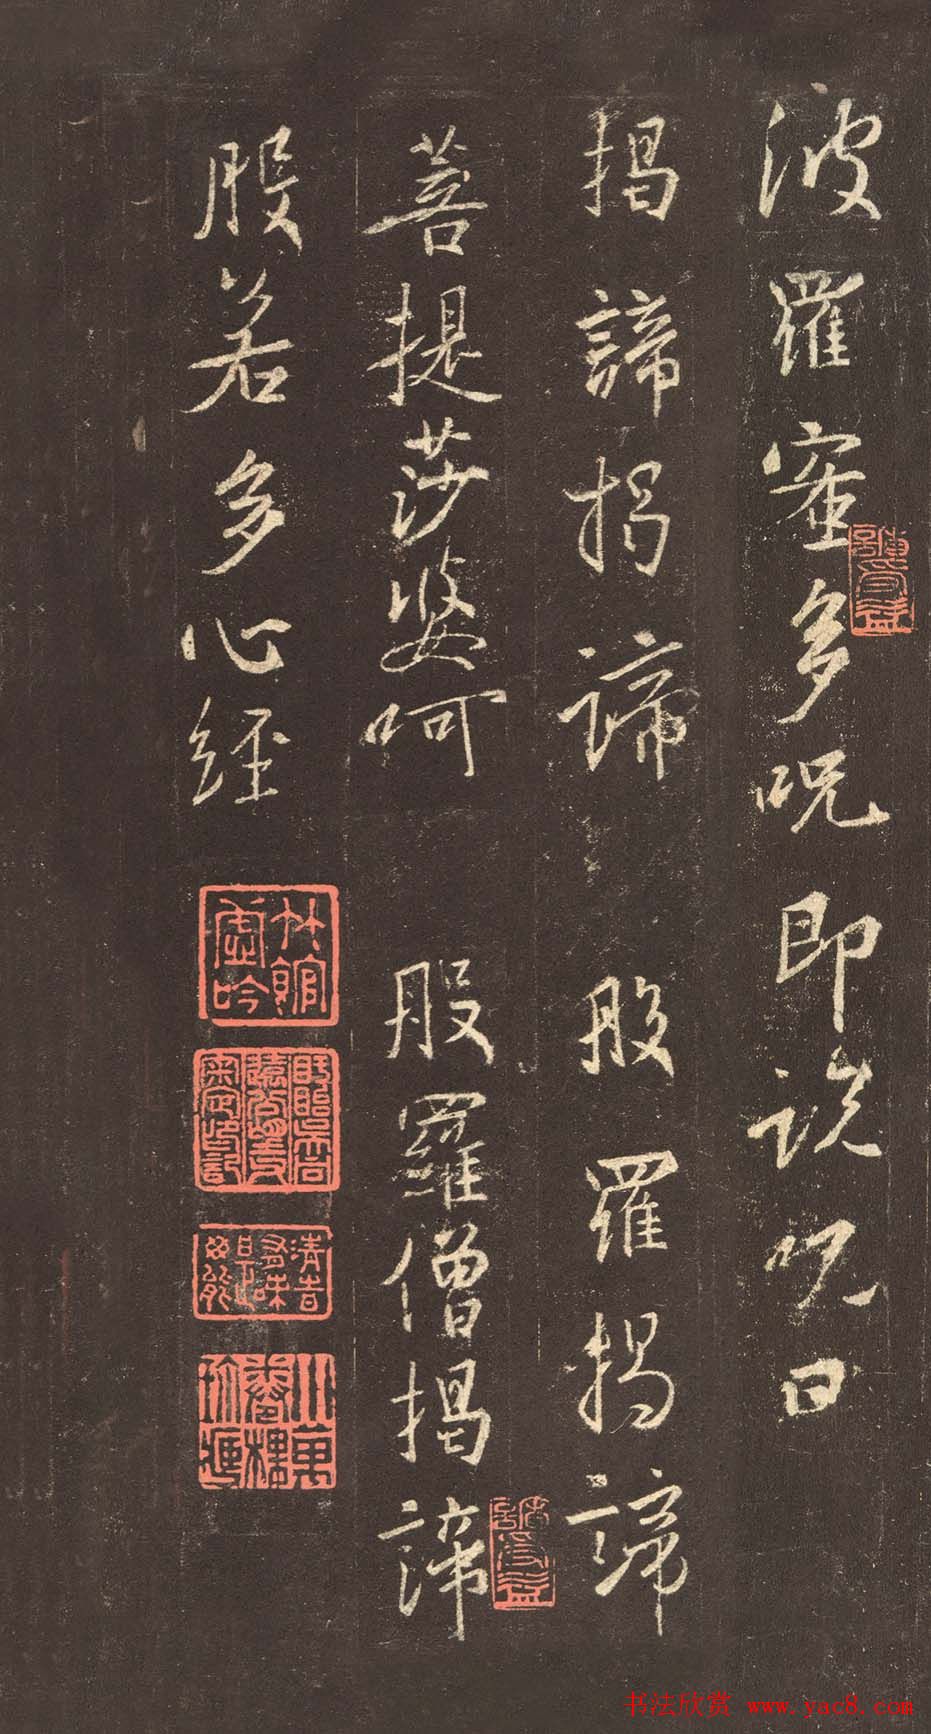 波羅蜜多呪即說呪曰
揭諦揭諦 般羅揭諦
菩提莎婆呵 般羅僧揭諦
般若多心經
竹館
虛吟
书法欣赏 www.yac8.com